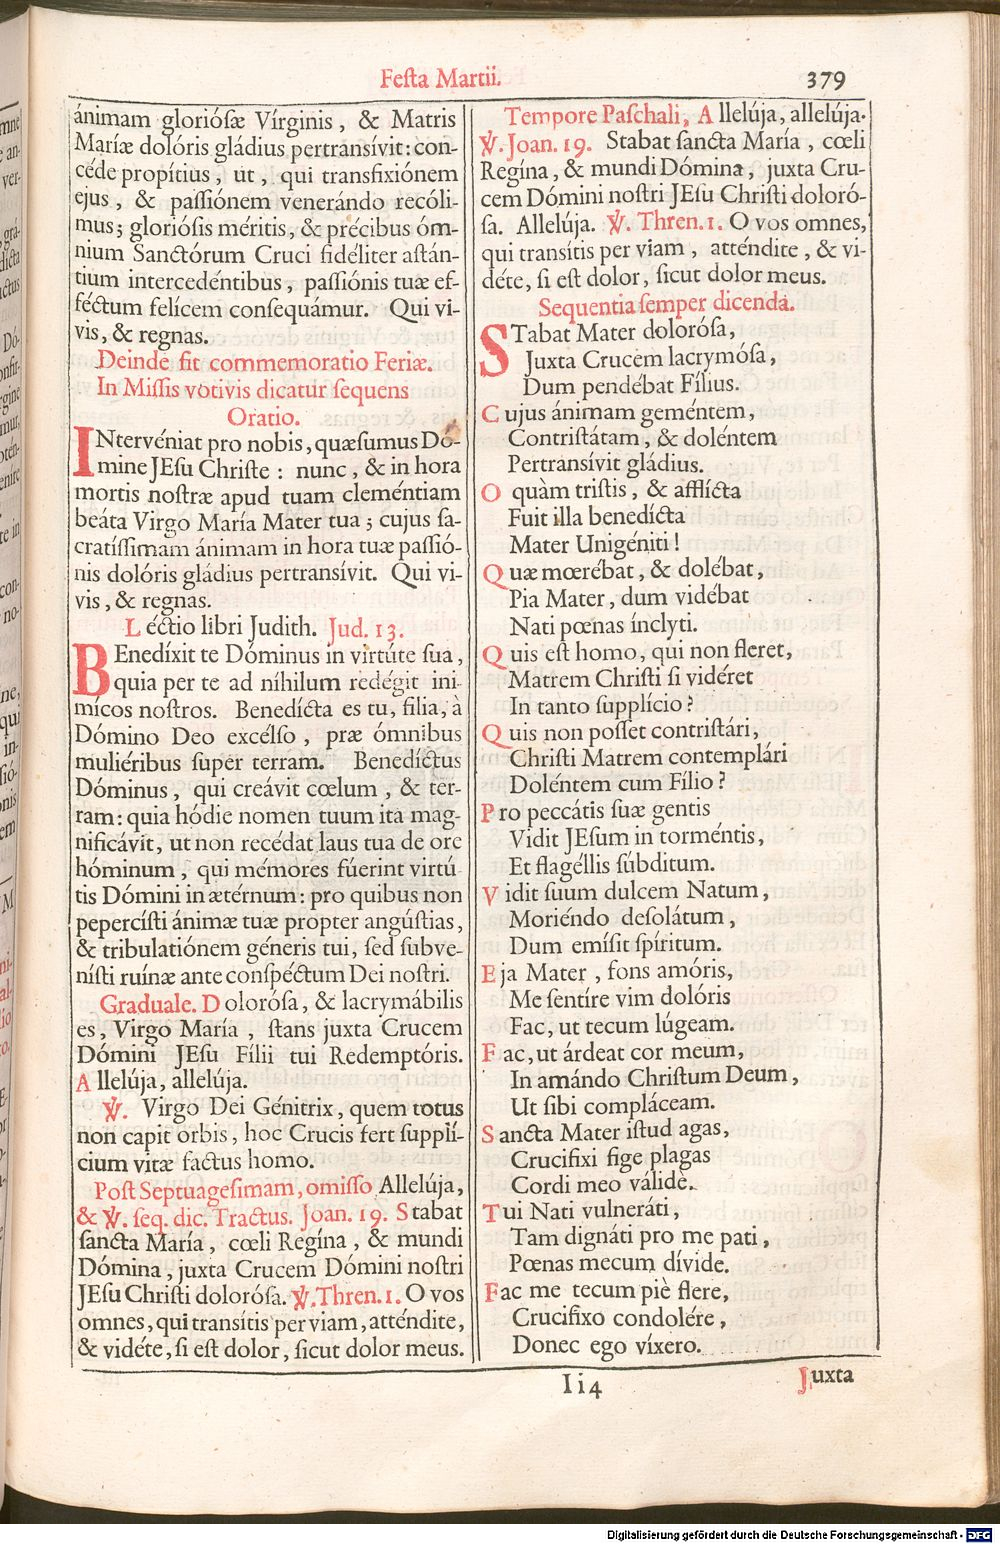 Festa Martii. 379
ánimam gloriósæ Vírginis, & Matris
Maríæ dolóris gládius pertransívit: con-
céde propítius, ut, qui transfixiónem
ejus, & passiónem venerándo recóli-
mus; gloriósis méritis, & précibus óm-
nium Sanctórum Cruci fidéliter astán-
tium intercedéntibus, passiónis tuæ ef-
féctum felícem consequámur. Qui vi-
vis, & regnas.
Deinde fit commemoratio Feriæ.
In Missis votivis dicatur sequens
Oratio.
INtervéniat pro nobis, quæsumus Dó-
mine JEsu Christe: nunc, & in hora
mortis nostræ apud tuam cleméntiam
beáta Virgo María Mater tua; cujus sa-
cratíssimam ánimam in hora tuæ passió-
nis dolóris gládius pertransívit. Qui vi-
vis, & regnas.
Léctio libri Judith. Jud. 13.
BEnedíxit te Dóminus in virtúte sua,
quia per te ad níhilum redégit ini-
mícos nostros. Benedícta es tu, filia, à
Dómino Deo excélso, præ ómnibus
muliéribus super terram. Benedíctus
Dóminus, qui creávit cœlum, & ter-
ram: quia hódie nomen tuum ita mag-
nificávit, ut non recédat laus tua de ore
hóminum, qui mémores fúerint virtú-
tis Dómini in ætérnum: pro quibus non
pepercísti ánimæ tuæ propter angústias,
& tribulatiónem géneris tui, sed subve-
nísti ruínæ ante conspéctum Dei nostri.
Graduale. Dolorósa, & lacrymábilis
es, Virgo María, stans juxta Crucem
Dómini JEsu Fílii tui Redemptóris.
Allelúja, allelúja.
℣. Virgo Dei Génitrix, quem totus
non capit orbis, hoc Crucis fert supplí-
cium vitæ factus homo.
Post Septuagesimam, omisso Allelúja,
& ℣. seq. dic. Tractus. Joan. 19. Stabat
sancta María, cœli Regína, & mundi
Dómina, juxta Crucem Dómini nostri
JEsu Christi dolorósa. ℣. Thren. 1. O vos
omnes, qui transítis per viam, atténdite,
& vidéte, si est dolor, sicut dolor meus.
Tempore Paschali, Allelúja, allelúja.
℣. Joan. 19. Stabat sancta María, cœli
Regína, & mundi Dómina, juxta Cru-
cem Dómini nostri JEsu Christi doloró-
sa. Allelúja. ℣. Thren. 1. O vos omnes,
qui transítis per viam, atténdite, & vi-
déte, si est dolor, sicut dolor meus.
Sequentia semper dicenda.
STabat Mater dolorósa,
Juxta Crucem lacrymósa,
Dum pendébat Fílius.
Cujus ánimam geméntem,
Contristátam, & doléntem
Pertransívit gládius.
O quàm tristis, & afflícta
Fuit illa benedícta
Mater Unigéniti!
Quæ mœrébat, & dolébat,
Pia Mater, dum vidébat
Nati pœnas ínclyti.
Quis est homo, qui non fleret,
Matrem Christi si vidéret
In tanto supplício?
Quis non posset contristári,
Christi Matrem contemplári
Doléntem cum Fílio?
Pro peccátis suæ gentis
Vidit JEsum in torméntis,
Et flagéllis súbditum.
Vidit suum dulcem Natum,
Moriéndo desolátum,
Dum emísit spíritum.
Eja Mater, fons amóris,
Me sentíre vim dolóris
Fac, ut tecum lúgeam.
Fac, ut árdeat cor meum,
In amándo Christum Deum,
Ut sibi compláceam.
Sancta Mater istud agas,
Crucifixi fige plagas
Cordi meo válidè.
Tui Nati vulneráti,
Tam dignáti pro me pati,
Pœnas mecum dívide.
Fac me tecum piè flere,
Crucifixo condolére,
Donec ego víxero.
Ii4 Juxta
Digitalisierung gefördert durch die Deutsche Forschungsgemeinschaft - DFG